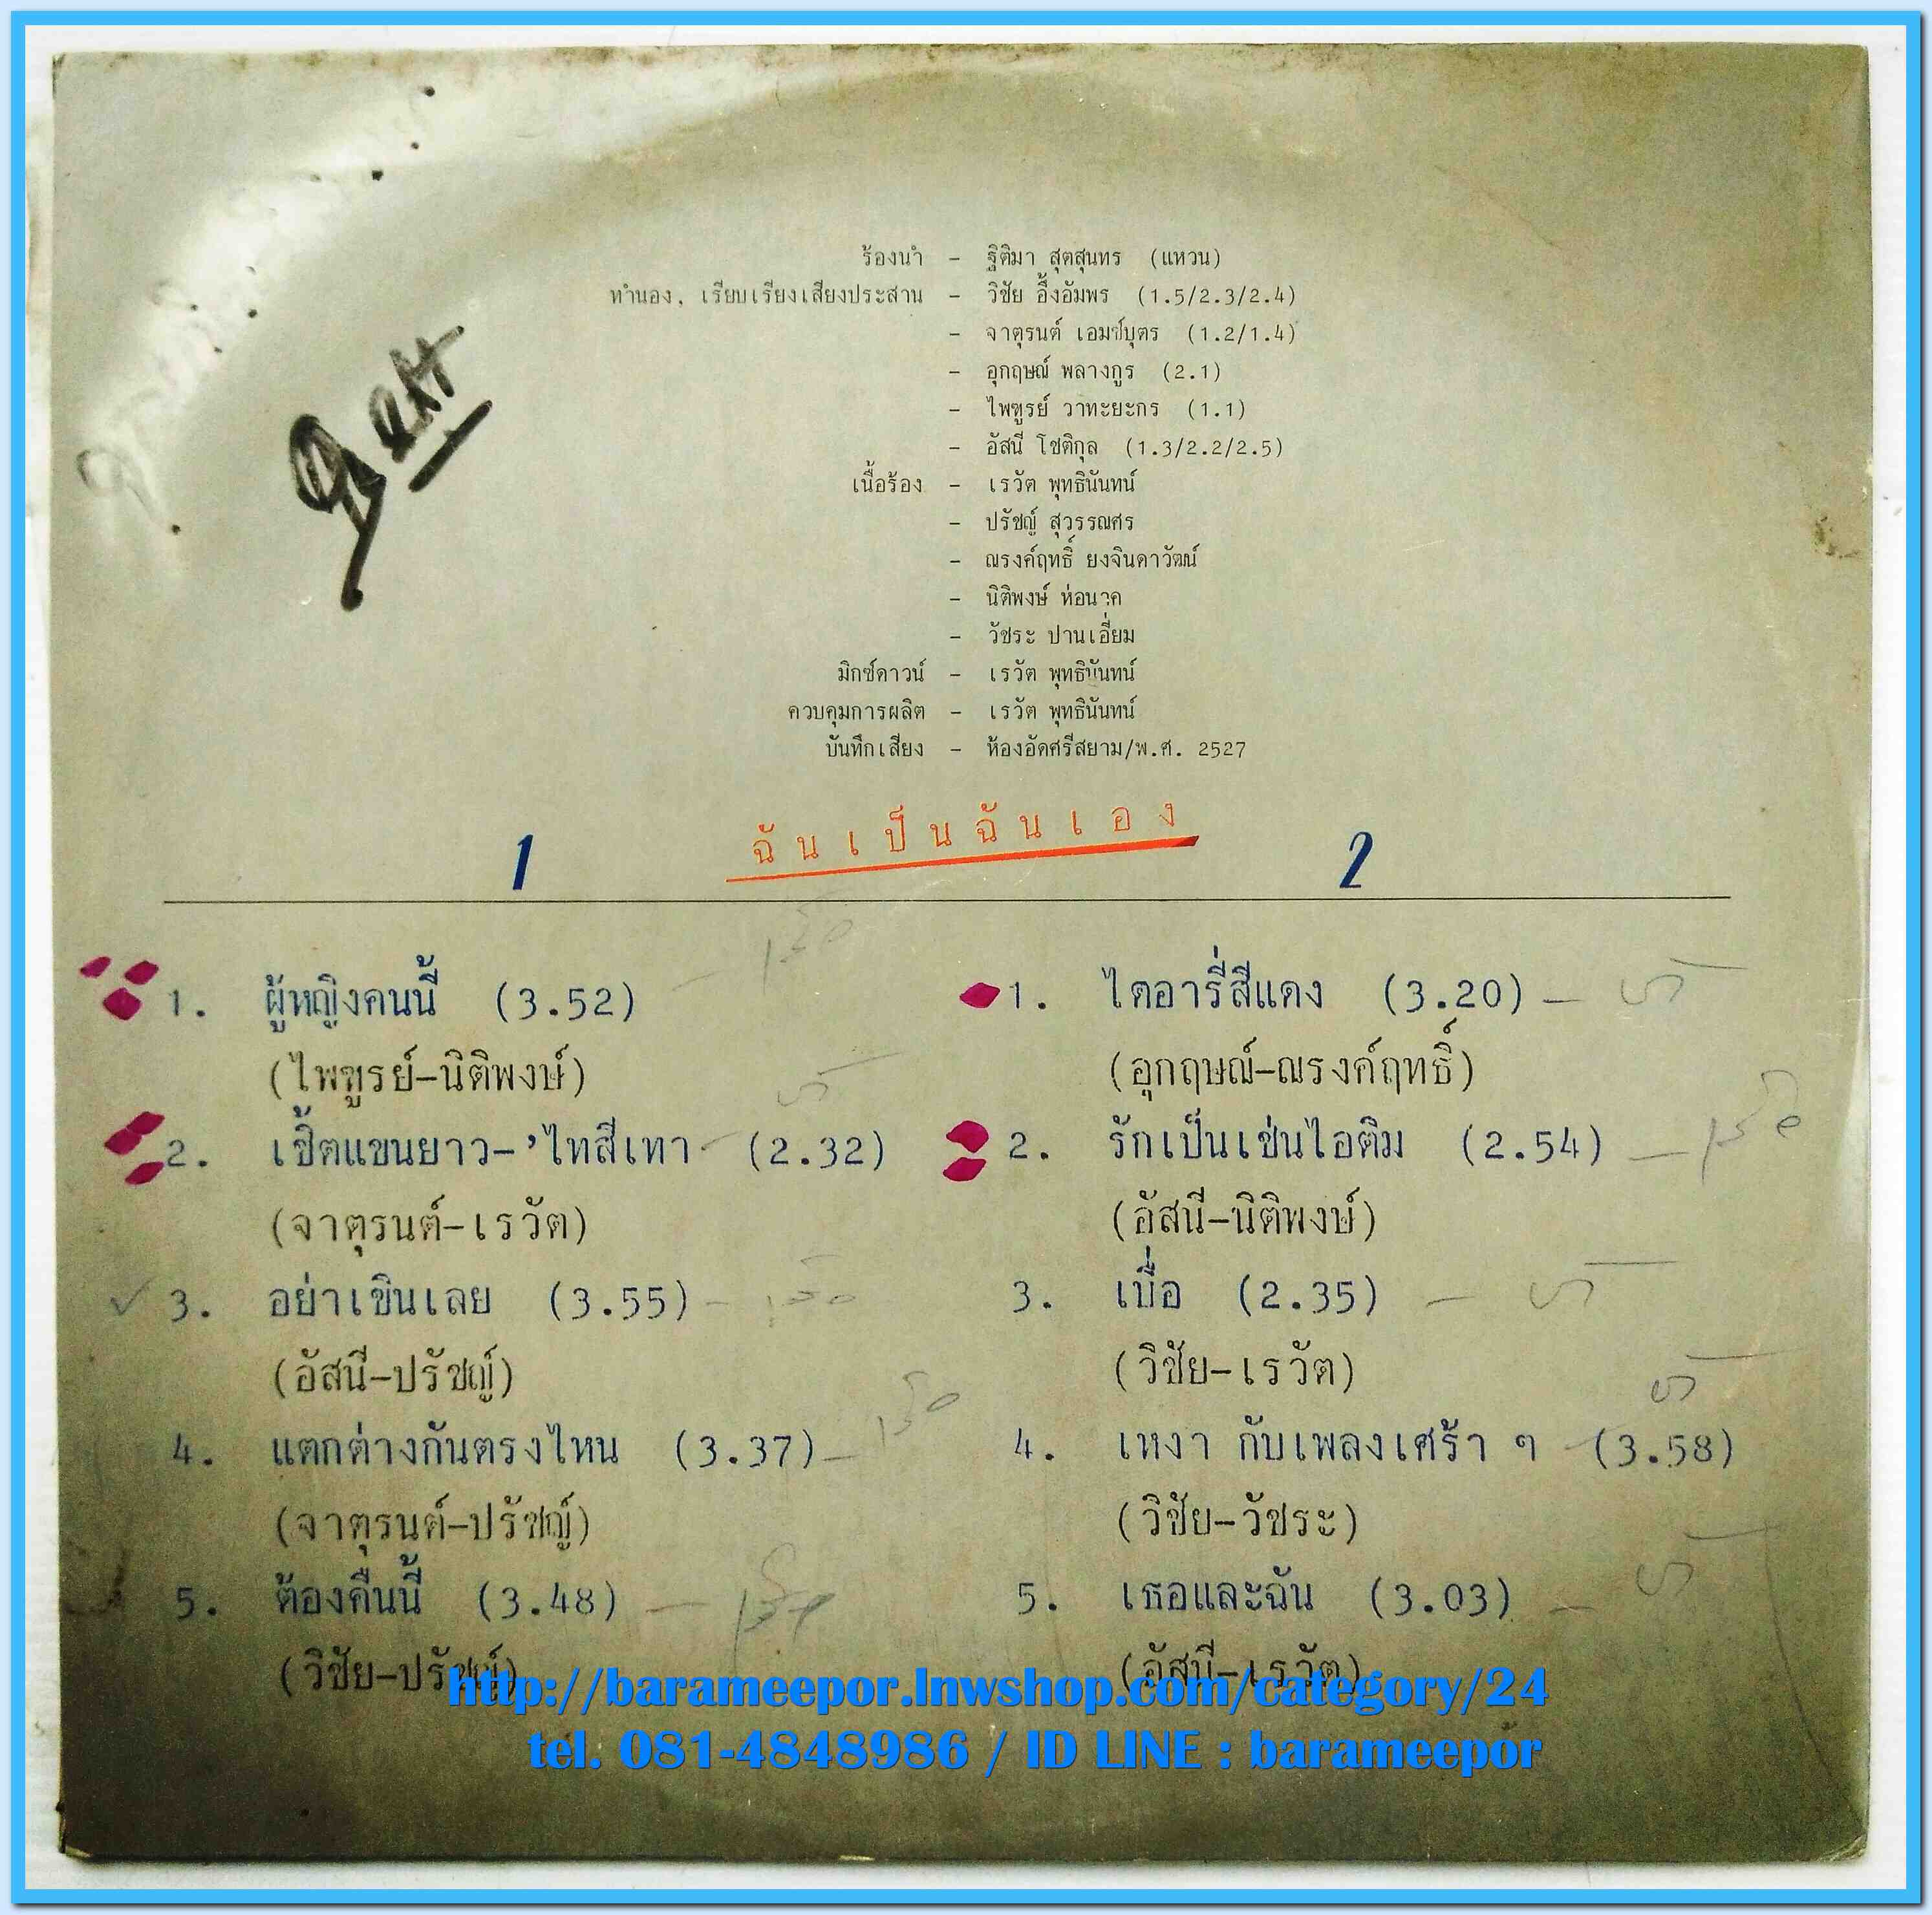 ร้องนำ - ฐิติมา สุตสุนทร (แหวน)
ทำนอง, เรียบเรียงเสียงประสาน - วิชัย อึ้งอัมพร (1.5/2.3/2.4)
- จาตุรนต์ เอมซ์บุตร (1.2/1.4)
- อุกฤษณ์ พลางกูร (2.1)
- ไพฑูรย์ วาทะยะกร (1.1)
- อัสนี โชติกุล (1.3/2.2/2.5)
เนื้อร้อง - เรวัต พุทธินันทน์
- ปรัชญ์ สุวรรณศร
- ณรงค์ฤทธิ์ ยงจินดาวัฒน์
- นิติพงษ์ ห่อนาค
- วัชระ ปานเอี่ยม
มิกซ์ดาวน์ - เรวัต พุทธินันทน์
ควบคุมการผลิต - เรวัต พุทธินันทน์
บันทึกเสียง - ห้องอัดศรีสยาม/พ.ศ. 2527
ฉันเป็นฉันเอง
1
1. ผู้หญิงคนนี้ (3.52)
(ไพฑูรย์-นิติพงษ์)
2. เชิ้ตแขนยาว-'ไทสีเทา (2.32)
(จาตุรนต์-เรวัต)
3. อย่าเขินเลย (3.55)
(อัสนี-ปรัชญ์)
4. แตกต่างกันตรงไหน (3.37)
(จาตุรนต์-ปรัชญ์)
5. ต้องคืนนี้ (3.48)
(วิชัย-ปรัชญ์)
2
1. ไดอารี่สีแดง (3.20)
(อุกฤษณ์-ณรงค์ฤทธิ์)
2. รักเป็นเช่นไอติม (2.54)
(อัสนี-นิติพงษ์)
3. เบื่อ (2.35)
(วิชัย-เรวัต)
4. เหงา กับเพลงเศร้า ๆ (3.58)
(วิชัย-วัชระ)
5. เธอและฉัน (3.03)
(อัสนี-เรวัต)
http://barameepor.lnwshop.com/category/24
tel. 081-4848986 / ID LINE : barameepor